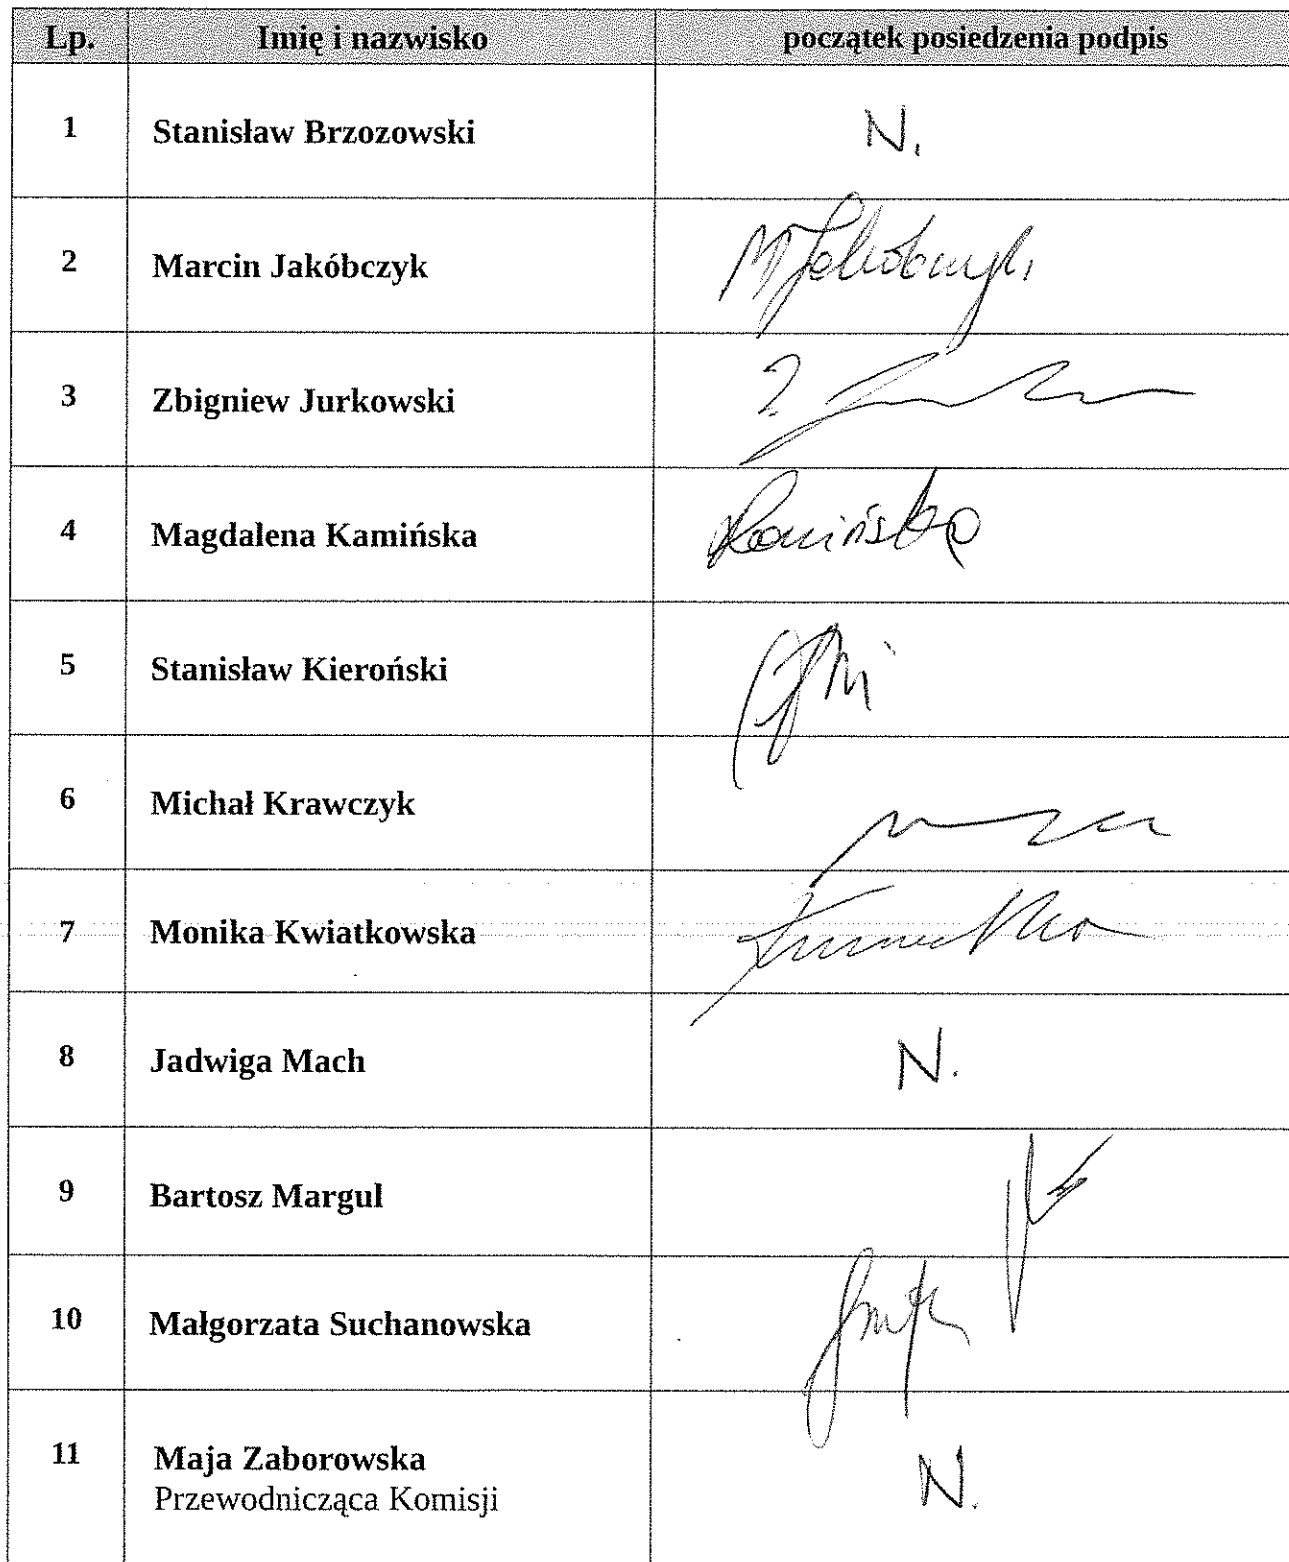 Lp. Imię i nazwisko początek posiedzenia podpis
1 Stanisław Brzozowski N.
2 Marcin Jakóbczyk MJakóbczyk
3 Zbigniew Jurkowski
4 Magdalena Kamińska Kamińska
5 Stanisław Kieroński
6 Michał Krawczyk
7 Monika Kwiatkowska
8 Jadwiga Mach N.
9 Bartosz Margul
10 Małgorzata Suchanowska
11 Maja Zaborowska N.
Przewodnicząca Komisji